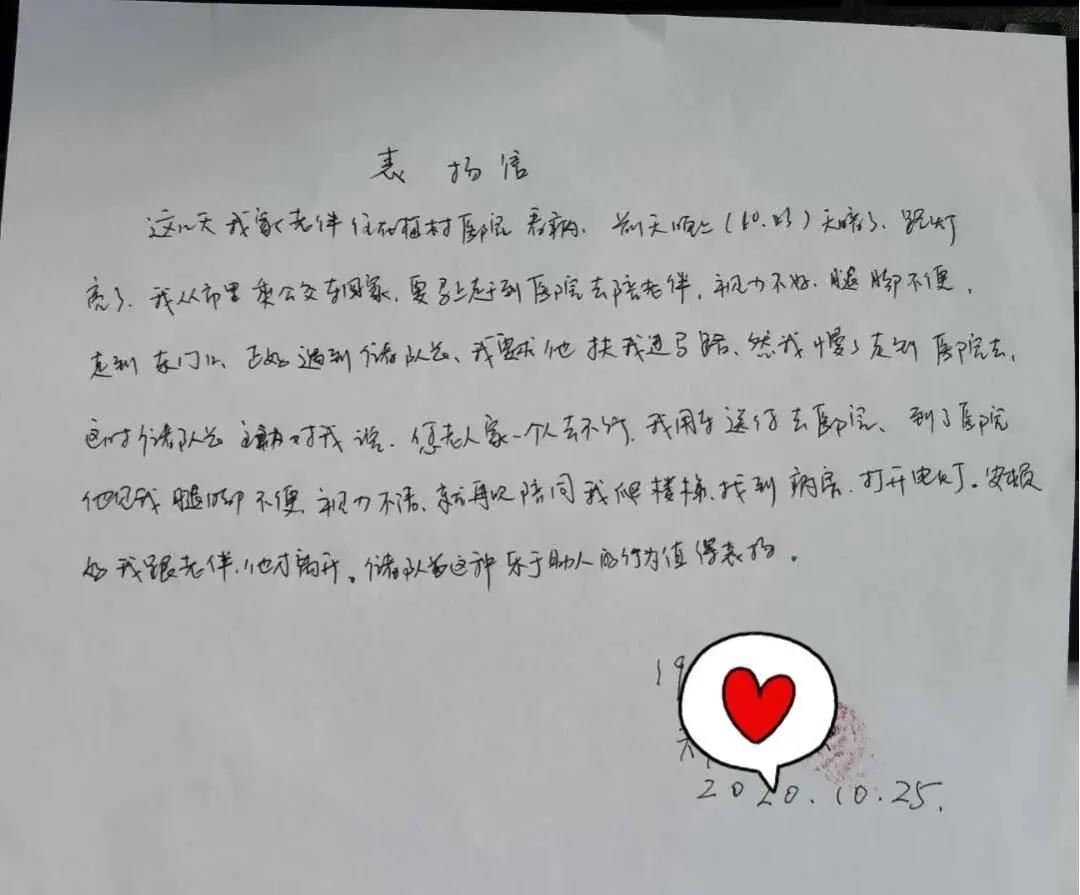 表扬信
这几天我家老伴住在植村医院看病。前天晚上(10.23)天暗了、路灯
亮了、我从市里乘公交车回家,要马上赶到医院去陪老伴,视力不好、腿脚不便,
走到东门口、正好遇到储队长、我要求他扶我过马路、然我慢了走到医院去、
这时储队长主动对我说、您老人家一个人去不行、我用车送你去医院、到了医院
他见我腿脚不便、视力不清、就再次陪同我爬楼梯、找到病房、打开电灯。安顿
好我跟老伴、他才离开。储队长这种乐于助人的行为值得表扬。
19
2020.10.25.